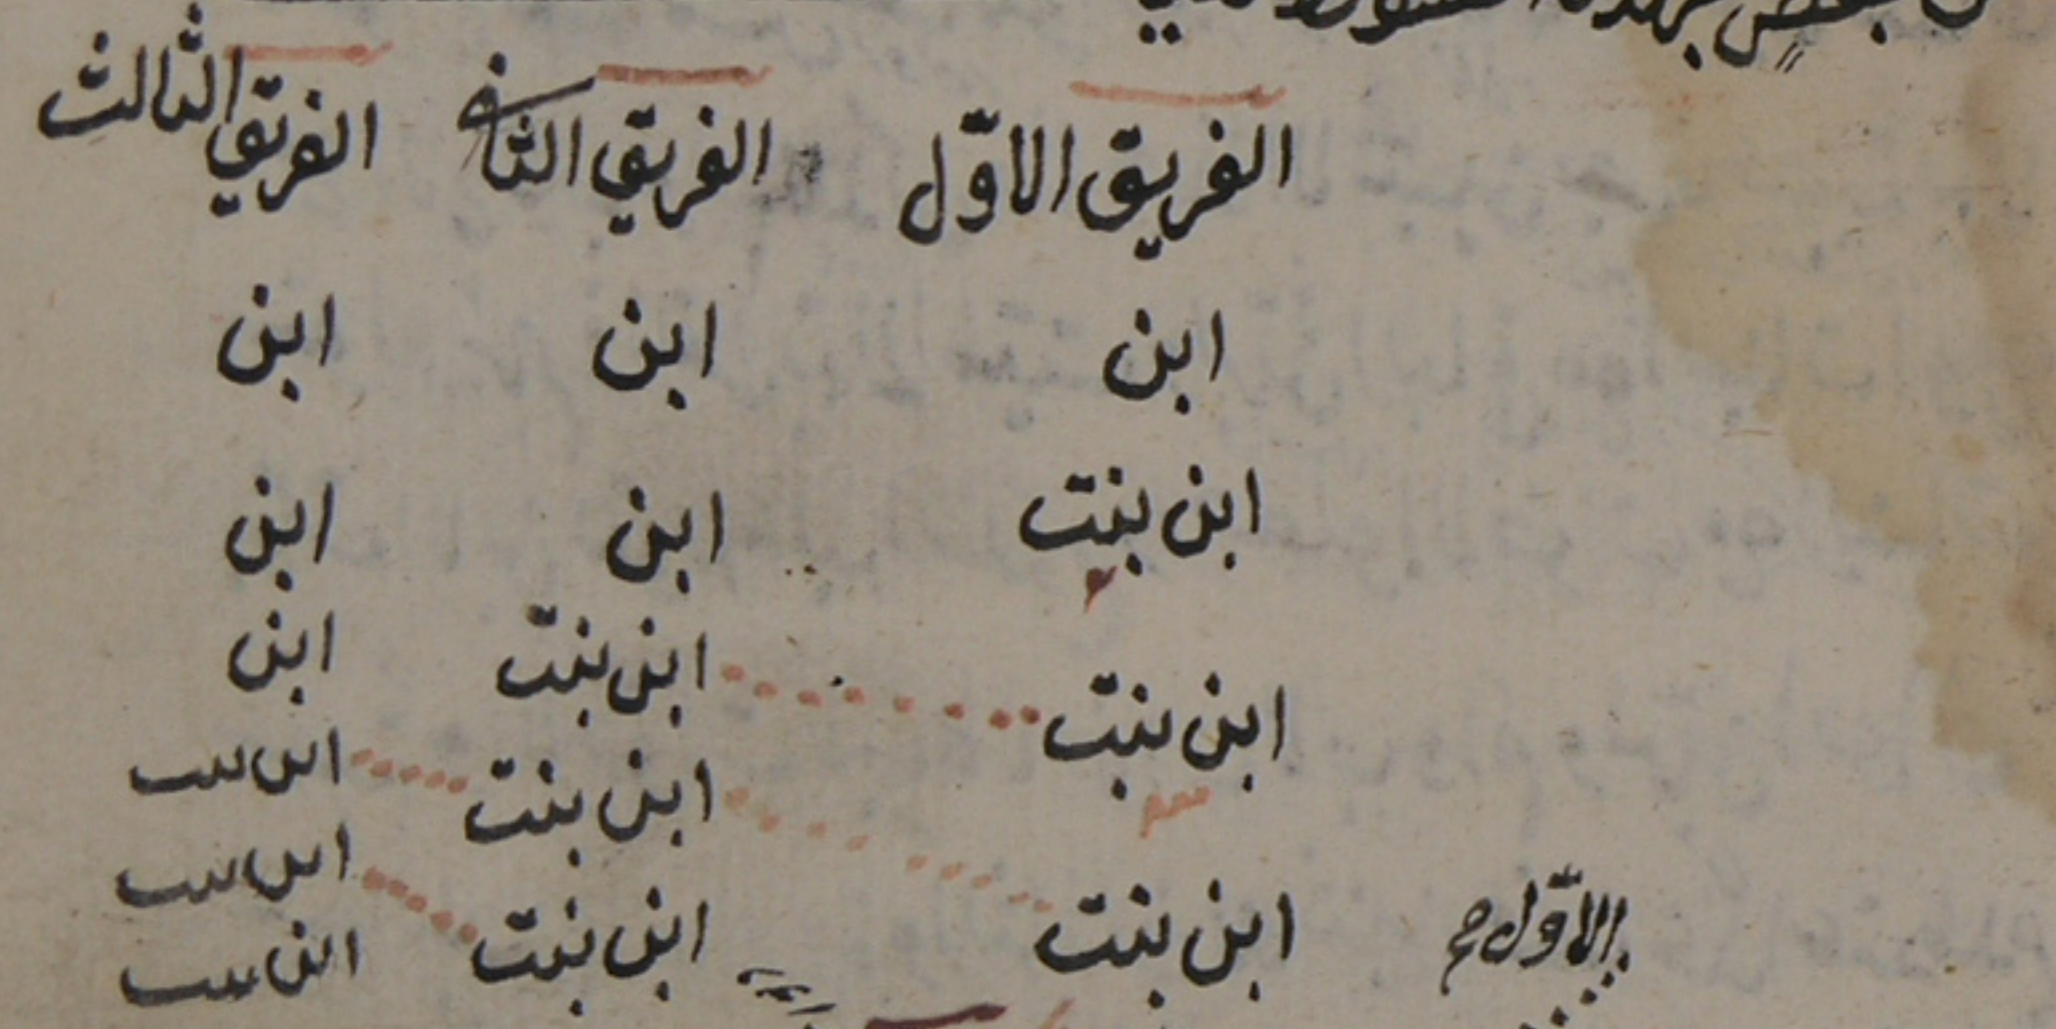 الفريق الاوّل الفريق الثاني الفريق الثالث
ابن ابن ابن
ابن بنت ابن ابن
ابن بنت ابن بنت ابن
ابن بنت ابن بنت ابن بنت
ابن بنت ابن بنت
ابن بنت
الاوّل